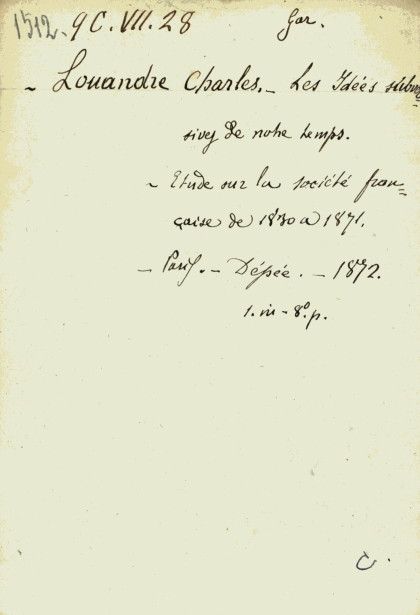 1512. 9 C. VII. 28 Gar.
- Louandre Charles. - Les Idées subver=
sives de notre temps.
- Etude sur la société fran=
çaise de 1830 a 1871.
- Paris. - Dépée. - 1872.
1. in - 8º. p.
C.